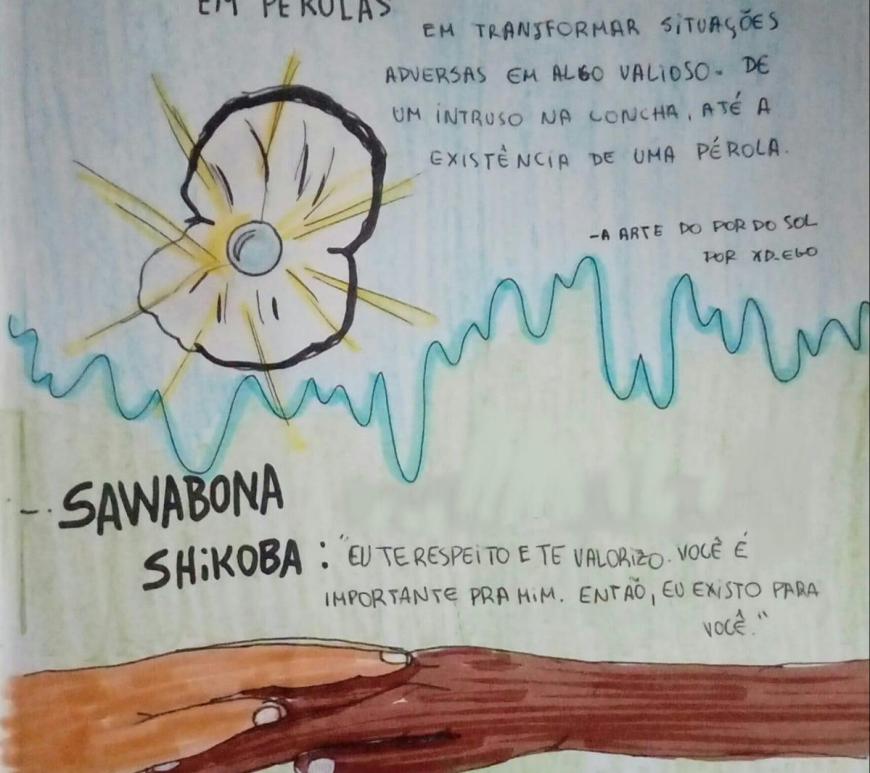 EM PÉROLAS
EM TRANSFORMAR SITUAÇÕES
ADVERSAS EM ALGO VALIOSO. DE
UM INTRUSO NA CONCHA, ATÉ A
EXISTÊNCIA DE UMA PÉROLA.
-A ARTE DO POR DO SOL
POR XD_EGO
-. SAWABONA
SHIKOBA : "EU TE RESPEITO E TE VALORIZO. VOCÊ É
IMPORTANTE PRA MIM. ENTÃO, EU EXISTO PARA
VOCÊ."